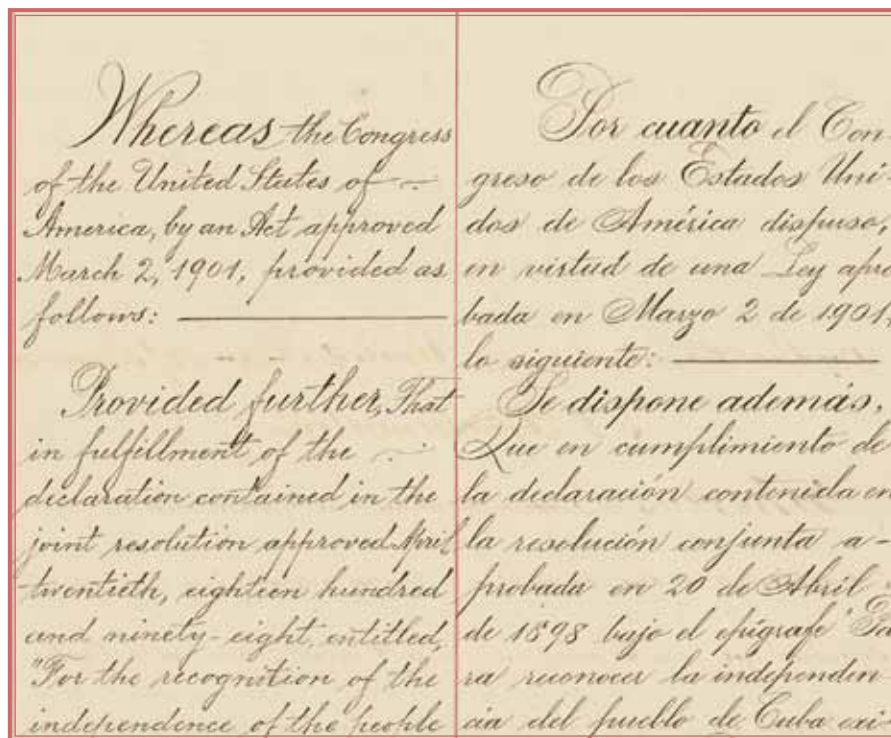 Whereas the Congress
of the United States of
America, by an Act approved
March 2, 1901, provided as
follows:
Provided further, That
in fulfillment of the
declaration contained in the
joint resolution approved April
twentieth, eighteen hundred
and ninety-eight, entitled,
"For the recognition of the
independence of the people
Por cuanto el Con
greso de los Estados Uni-
dos de América dispuso,
en virtud de una Ley apro
bada en Marzo 2 de 1901,
lo siguiente:
Se dispone además,
Que en cumplimiento de
la declaración contenida en
la resolución conjunta a-
probada en 20 de Abril
de 1898 bajo el epígrafe "Pa
ra reconocer la independen
cia del pueblo de Cuba exi-